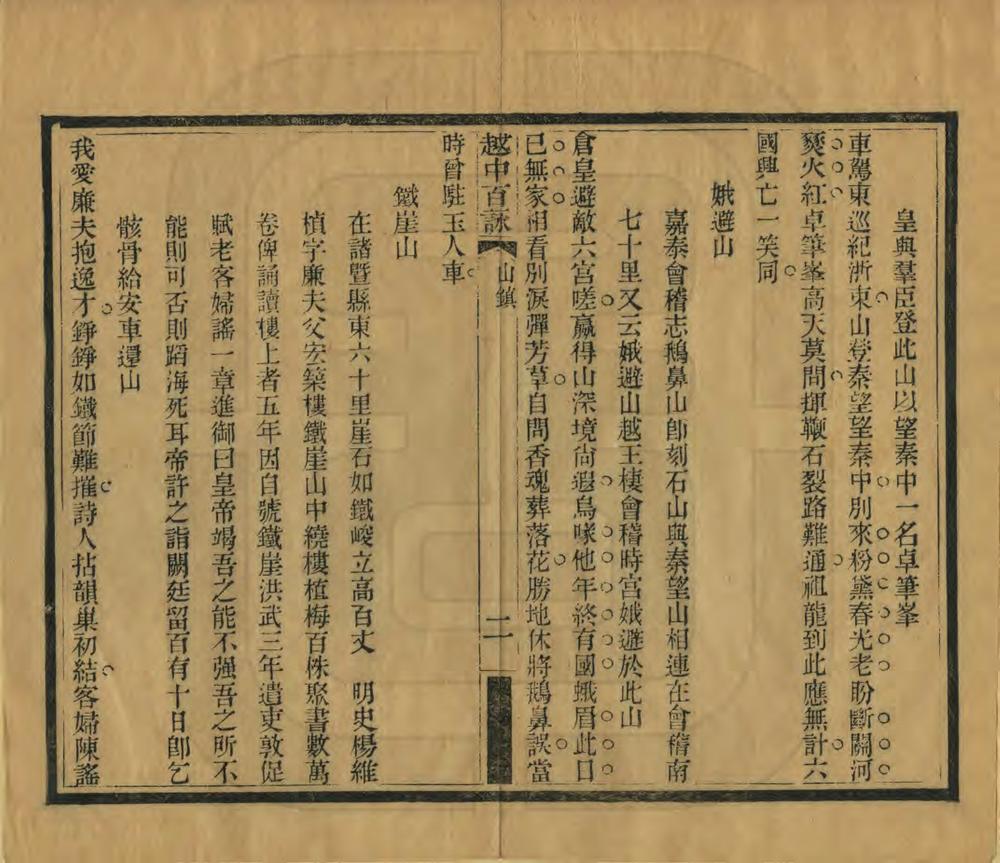 皇與羣臣登此山以望秦中一名卓筆峯
車駕東巡紀浙東山登秦望望秦中別來粉黛春光老盼斷關河
燹火紅卓筆峯高天莫問揮鞭石裂路難通祖龍到此應無計六
國興亡一笑同
娥避山
嘉泰會稽志鵝鼻山卽刻石山與秦望山相連在會稽南
七十里又云娥避山越王棲會稽時宮娥避於此山
倉皇避敵六宮嗟贏得山深境尙遐鳥喙他年終有國蛾眉此日
已無家相看別淚彈芳草自問香魂葬落花勝地休將鵝鼻誤當
越中百詠
山鎮
二
時曾駐玉人車
鐵崖山
在諸暨縣東六十里崖石如鐵峻立高百丈 明史楊維
楨字廉夫父宏築樓鐵崖山中繞樓植梅百株聚書數萬
卷俾誦讀樓上者五年因自號鐵崖洪武三年遣吏敦促
賦老客婦謠一章進御曰皇帝竭吾之能不强吾之所不
能則可否則蹈海死耳帝許之詣闕廷留百有十日卽乞
骸骨給安車還山
我愛廉夫抱逸才錚錚如鐵節難摧詩人拈韻巢初結客婦陳謠